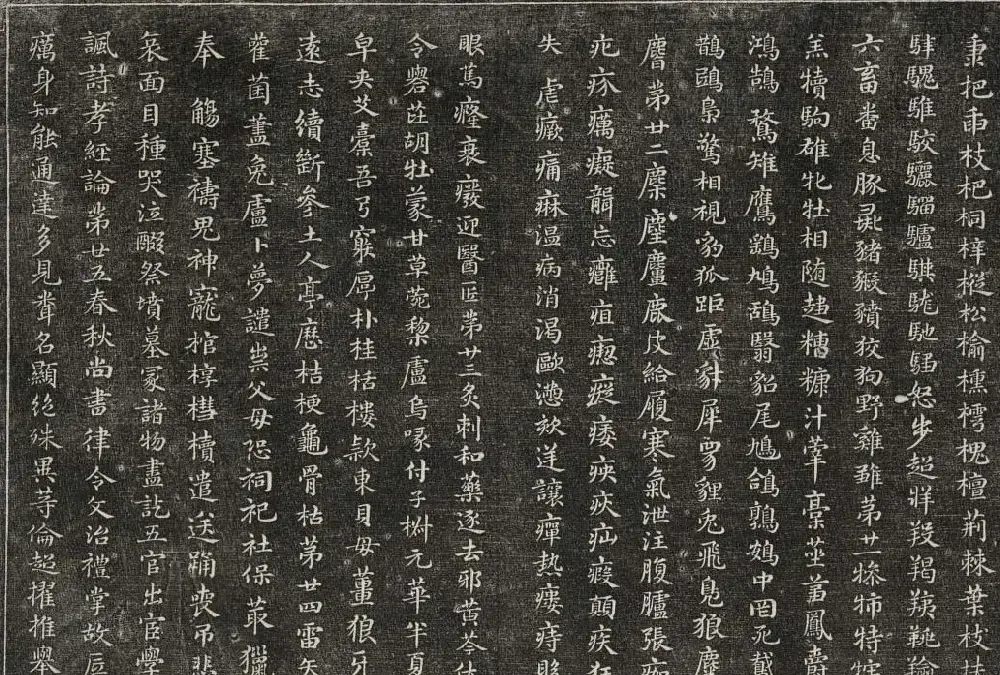 秉把臿枝杷桐梓樅松榆櫄樗槐檀荊棘葉枝扶
騂騩騅駮驪騮驢騏駹馳騷怒步超牂羖羯羠羭
六畜番息豚彘豬豭豶狡狗野雞雛第廿一㹑㹀特
羔犢駒雄牝牡相随趨糟糠汁滓稾莝芻鳳爵
鴻鵠鶩雉鷹鷂鳩鴰翳貂尾鳩鴿鶉鴳中罔死
鵲鴟梟驚相視豹狐距虛豺犀兕貍兔飛鼯狼麋
麏第廿二麋麈麠麃皮給履寒氣泄注腹臚張痂
疕疥癘癡聾忘癰疽瘛瘲痿疢疾疝瘕顛疾狂
失 虐瘀痛痳温病消渴歐懣欬逆讓癉熱瘻痔眵
眼篤癃衰癈迎醫匠第廿三灸刺和藥逐去邪黄芩伏
令礜茈胡牡蒙甘草菀藜盧烏喙付子椒元華半夏
皁夾艾橐吾弓窮厚朴桂栝樓款東貝母薑狼牙
遠志續斷參土人亭歷桔梗龜骨枯第廿四雷矢
雚菌藎兔盧卜夢譴祟父母恐祠祀社保叢獵
奉 觴塞禱鬼神寵棺椁槥櫝遣送踊喪吊悲
哀面目種哭泣醊祭墳墓冢諸物盡訖五官出宦學
諷詩孝經論第廿五春秋尚書律令文治禮掌故底
癘身知能通達多見聞名顯絶殊異等倫超擢推舉